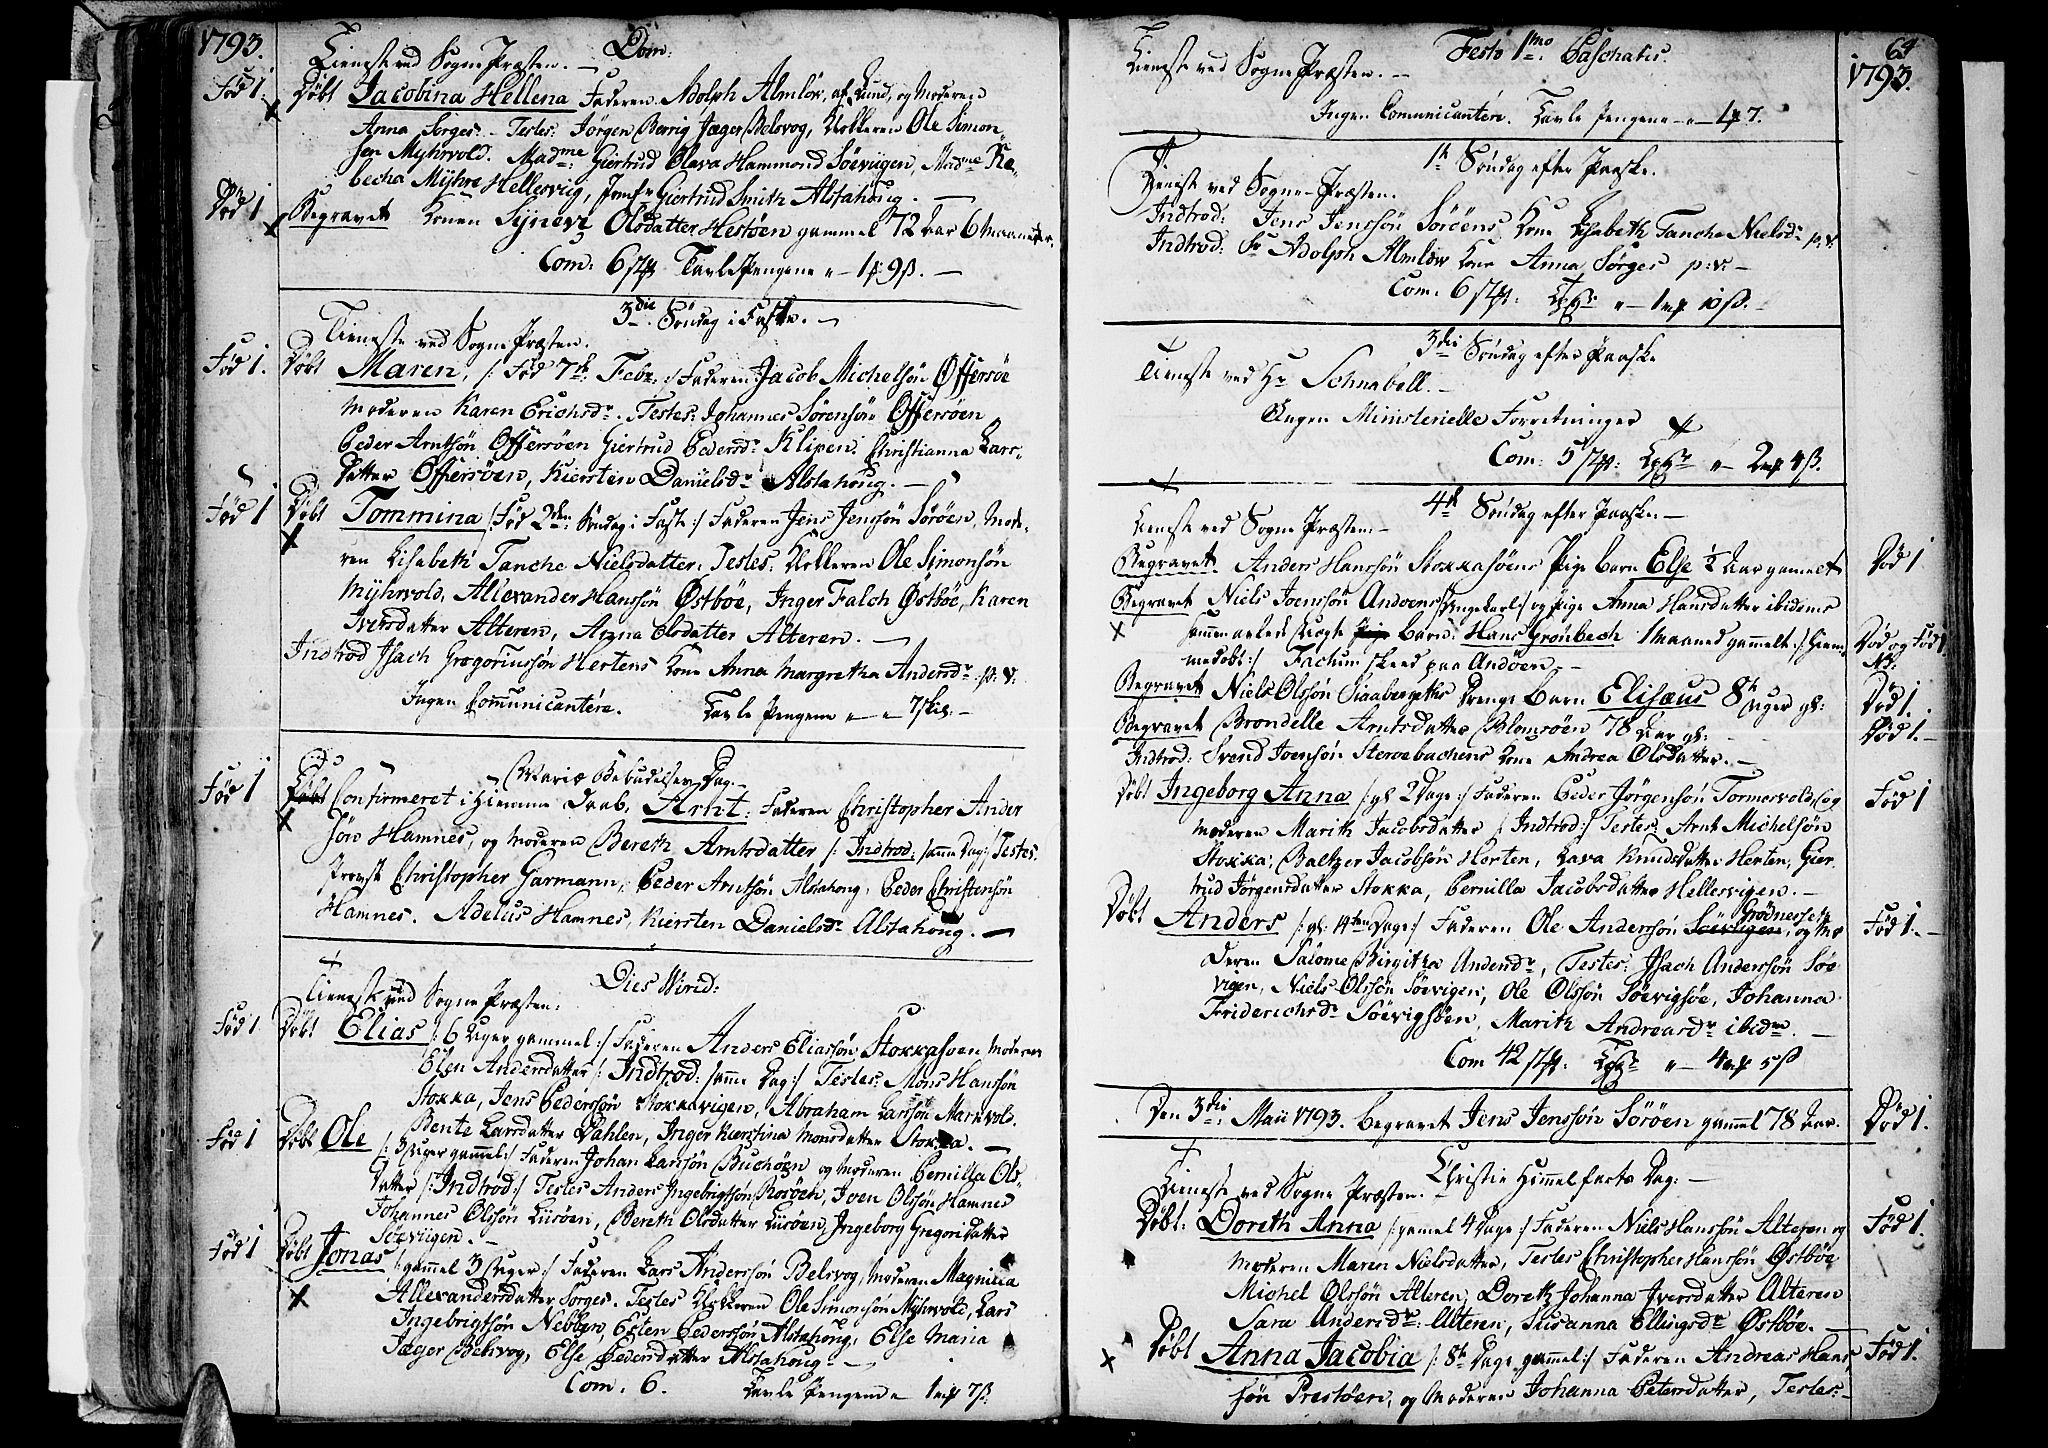 1793.
Dom:
Tieneste ved Sogne Præsten. —
Fød 1
Døbt Jacobina Hellena Faderen Adolph Almlöv, af Lund, og Moderen
Anna Sørges. Testes: Jørgen Berrig Jæger Belsvog, Klokkeren Ole Simon,,
sen Myhrvold. Madme: Giertrud Olava Hammond Søeviigen, Madme Re,,
becha Myhre Hellesviig, Jomfr Giertrud Smith Alstahoug. —
Død 1
Begravet Konen Synevæ Olsdatter Hestøen gammel 72 Aar 6 Maaneder.
Com: 6 Tavle Pengene " — 1 9 ß. —
3die Søndag i Faste. —
Tieneste ved Sogne Præsten.
Fød 1. Døbt Maren, /: Fød 7de Febr. :/ Faderen Jacob Michelsön Offersöe
Moderen Karen Erichsdr. Testes: Johannes Sörensön Offersöen
Peder Arntsön Offersöen Giertrud Pedersdr Klipen. Christianna Lars,,
Datter Offersöen, Kiersten Danielsdr Alstahoug. —
Fød 1 Døbt Tommina /: Fød 2den Søndag i Fast :/ Faderen Jens Jenssön Söröen, Mode,,
ren Lisabeth Tanche Nielsdatter. Testes: Klokkeren Ole Simonsön
Myhrvold, Allexander Hanssön Østböe, Inger Falch Østböe, Karen
Iversdatter Alteren, Anna Olsdatter Alteren. —
Indtrod Isach Gregoriussön Hertens Kone Anna Margretha Andersdr p: v:
Ingen Communicantere. Tavle Pengene " — " 7 skil. —
Mariæ Bebudelses Dag. —
Fød 1 Døbt Confirmeret i Hiemme Daab, Arnt: Faderen Christopher Ander
sön Hamnes, og Moderen Bereth Arntsdatter /: Indtrod: samme Dag :/ Testes.
Provst Christopher Garmann, Peder Arntsön Alstahoug, Peder Christensön
Hamnes. Adelus Hamnes, Kiersten Danielsdr Alstahoug. —
Dies Virid:
Tieneste ved Sogne Præsten:
Fød 1 Døbt Elias /: 6 Uger gammel :/ Faderen Anders Eliassön Stokkasoen Moderen
Elen Andersdatter /: Indtrod: samme Dag :/ Testes: Mons Hanssön
Stokka, Jens Pederssön Stokkavigen, Abraham Larssön Markvold.
Bente Larsdatter Dahlen, Inger Kirstina Monsdatter Stokka. —
Fød 1 Døbt Ole /: 3 Uger gammel :/ Faderen Johan Larssön Buchöen og Moderen Pernilla Ols,,
Datter /: Indtrod :/ Testes Anders Ingebrigtsön Rosöen, Joen Olssön Hamnes
Johannes Olssön Liisöen, Bereth Olsdatter Liisöen, Ingeborg Gregoridatter
Söeviigen. —
Fød 1 Døbt Jonas /: gammel 3 Uger :/ Faderen Lars Anderssön Belsvog, Moderen Magnilia
Allexandersdatter Sorges. Testes Klokkeren Ole Simonsön Myhrvold, Lars
Ingebrigtsön Nebben, Esten Pederssön Alstahoug, Else Maria
Jæger Belsvog, Else Pedersdatter Alstahoug. —
Com: 6. Tavle Pengene " 1 7 ß.
64
1793.
Festo 1mo Paschatis.
Tieneste ved Sogne Præsten. —
Ingen Comunicantere. Tavle Pengene " — 1 7.
1te Søndag efter Paaske.
Tieneste ved Sogne-Præsten.
Indtrod: Jens Jenssön Söröens Kone Lisabeth Tanche Nielsdr p: v:
Indtrod: Sr Adolph Almlöw Kone Anna Sørges p: v: —
Com: 6 " — 1 10 ß. —
3die Søndag efter Paaske
Tieneste ved Hr Schnabell. —
Ingen Ministerielle Forretninger
Com: 5 " — 2 4 ß.
4de Søndag efter Paaske. —
Tieneste ved Sogne Præsten. —
Begravet Anders Hanssön Stokkasöens Pige Barn Else ½ Aar gammelt Død 1
Begravet Niels Joenssön Andoens /: Ungekarl :/ og Pige Anna Hansdatter ibidems
sammen avlede Uægte Barn: Hans Grönbech 1 Maaned gammelt :/ Hiem, Død og Fød 1.
medöbt :/ Factum skeed paa Andöen. — NB:
Begravet Niels Olssön Drenge Barn Elisæus 8te Uger gl: Død 1.
Begravet Brondelle Arntsdatter Blomsöen 78 Aar gl: Død 1. —
Indtrod: Svend Joensön Kone Andrea Olsdatter. —
Døbt Ingeborg Anna /: gl: 2 Dage :/ Faderen Peder Jörgensön Tormersvold, og Fød 1
Moderen Marith Jacobsdatter /: Indtrod :/ Testes: Arnt Michelsön
Stokka, Baltzer Jacobsön Herten, Lava Knudsdatter Herten, Gier
trud Jörgensdatter Stokka, Pernilla Jacobsdatter Hellesvigen. —
Døbt Anders /: gl: 14ten Dage :/ Faderen Ole Anderssön Söevigen, og Mo Fød 1. —
deren Salome Birgitha Andersdr, Testes: Isach Anderssön Söe
vigen, Niels Olssön Söevigen, Ole Olssön Söevigsöe, Johanna
Friderichsdr Söevigsöen, Marith Andreasdr ibidm. —
Com 42 " — 4 5 ß
Den 3die Maii 1793. begravet Jens Jenssön Söröen gammel 78 Aar. Død 1.
Christi Himmelfarts Dag: —
Tieneste ved Sogne Præsten.
Døbt: Doreth Anna /: gamel 4 Dage :/ Faderen Niels Hanssön Alteren og Fød 1.
Moderen Maren Nielsdatter, Testes Christopher Hanssön Østböe
Michel Olssön Alteren, Doreth Johanna Iversdatter Alteren
Sara Andersdr Alteren, Susanna Ellingsdr Østböe. —
Døbt Anna Jacobia /: 8te Dage gammel :/ Faderen Andreas Hans Fød 1.
sön Prestöen, og Moderen Johanna Petersdatter, Testes: —